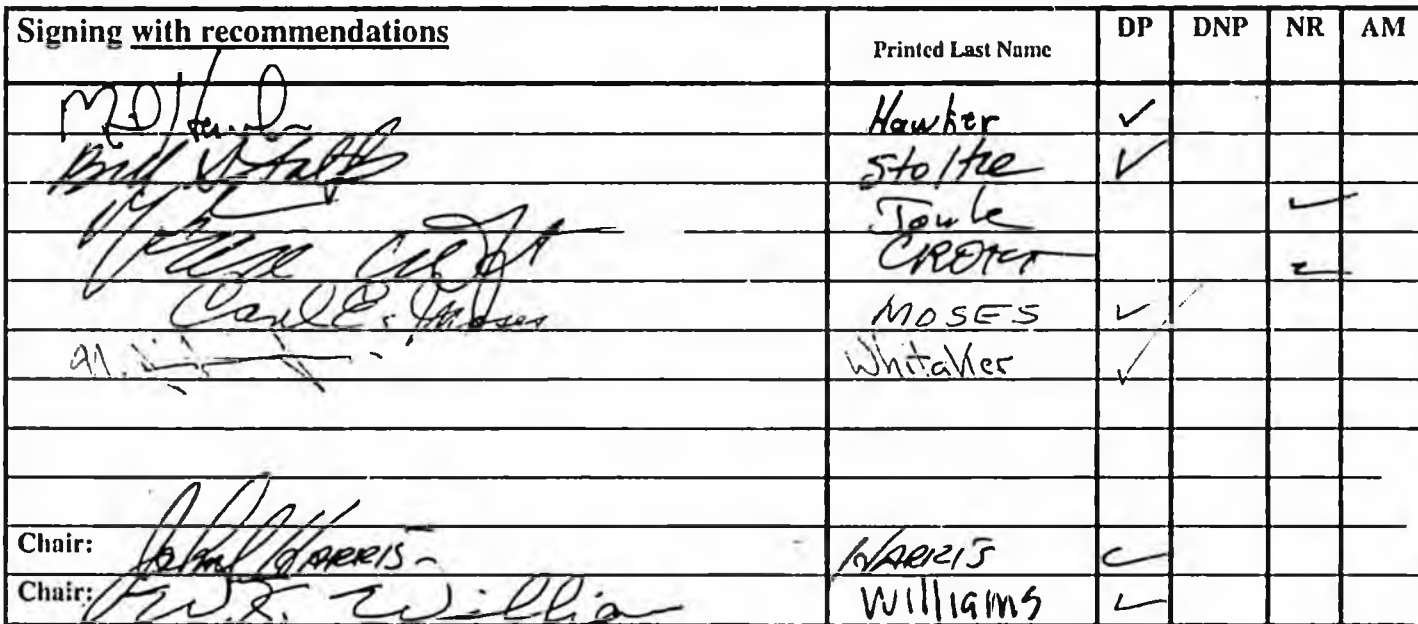 Signing with recommendations Printed Last Name DP DNP NR AM
Hawker ✓
Bill Stoltze Stoltze ✓
✓
Croft ✓
Carl E. Moses MOSES ✓
Whitaker ✓
Chair: John Harris HARRIS ✓
Chair: W.K. William Williams ✓